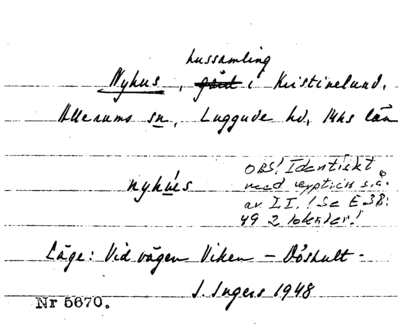 hussamling
Nyhus, gård i Kristinelund,
Allerums sn, Luggude hd, Mhs län
nyhús
OBS! Identiskt
med uppteckn. s.å.
av I.I.! Se E 38:
49 2 lokaler!
Läge: Vid vägen Viken – Döshult.
I. Ingers 1948
Nr 5670.